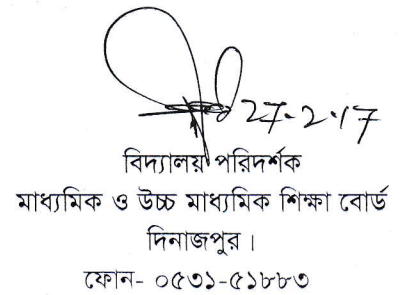 27-2-17
বিদ্যালয় পরিদর্শক
মাধ্যমিক ও উচ্চ মাধ্যমিক শিক্ষা বোর্ড
দিনাজপুর।
ফোন- ০৫৩১-৫১৮৮৩